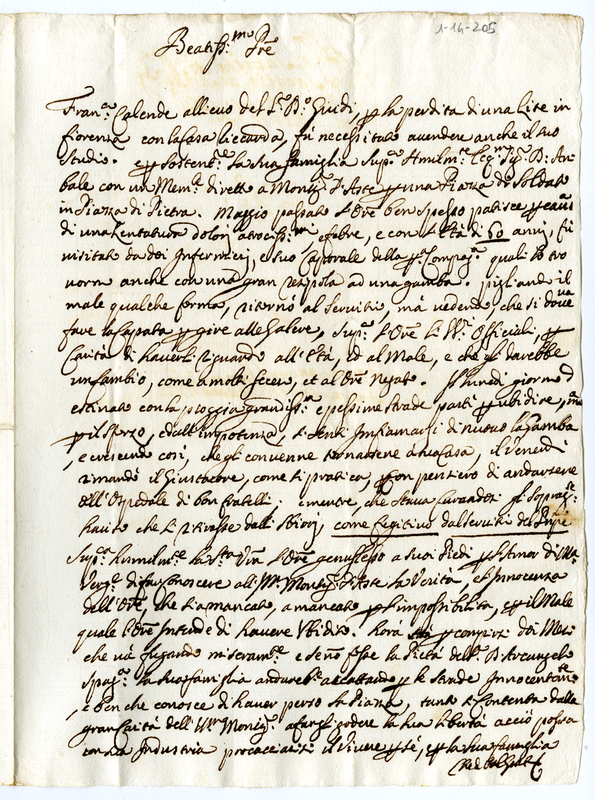 1-14-205
Beatiss.mo Pre
Fran.o Calende allievo del S.r B.o Guidi, p la perdita di una Lite in
fiorenza con la Casa Riccarda, fù necessitato a vendere anche il suo
studio. e p sosten.e la sua famiglia Sup.o Humilm.e
bale con un Mem.le diretto a Monsig.r d'Aste p una Piazza di Soldato
in Piazza di Pietra. Maggio passato l'Ore ben spesso patisce
di una dolori atrociss.mi e febre, e con l'età di 60 anni, fù
visitato da doi Infermieri, e suo Caporale della Compag.a quali lo tro
vorno anche con una gran resipola ad una gamba. pigliando il
male qualche forma, ritornò al servitio, mà vedendo, che si doveva
fare la Capata p gire alle Galere, Sup.ò l'Ore li SS.ri Officiali, p
Carità di haverli riguardo all'Età, ed al Male, e che gli darebbe
un Cambio, come a molti fecero, et al Ore Negato. Il lunedì giorno
estinato con la pioggia grandiss.a e pessime strade partì p ubidire,
p il sforzo, e dall'impotenza, si sentì infiamarsi di nuovo la gamba
, e crescendo così, che gli convenne tornarsene a sua Casa, il Venerdì
rimandò il Giustacore, come si pratica, p con pensiero di andarsene
all'Ospedale di bon fratelli. e mentre, che stava curandosi gli Soprag.e
havito che si ritirasse dalli sbiori, come fugitivo dal servitio del Prīpe
Sup.a humilm.te la S.ta V.ra l'Ore genuflesso a suoi Piedi p l'Amor di M.a
Verg.e di far conoscere all' Monsig.r d'Aste la Verità, et Innocenza
dell'Ore, che s'a mancato, a mancato p l'impossibilità, e p il Male
quale l'Ore Intende di havere Ubidito. horà p compire doi Mesi
che và fugando miseram.e e se nō fosse la Pietà dell. P. Arcangelo
Spag.o la sua famiglia andarebbe accattando p le strade Innocentem.te
, e ben che conosce di haver perso la Piazza, tanto si contenta dalla
gran Carità dell' Monsig.r a fargli godere la sua libertà acciò possa
con sua Industria procacciarsi il Vivere p sé, e p la sua famiglia